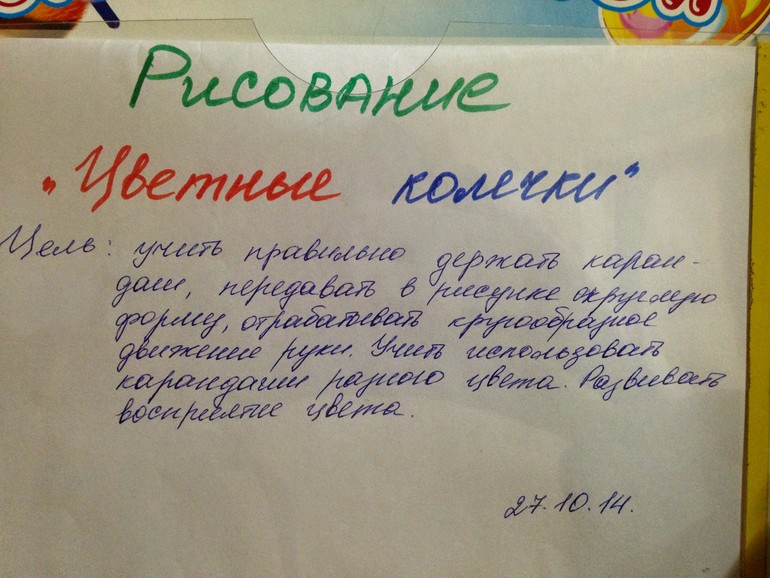 Рисование
"Цветные колечки"
Цель: учить правильно держать каран-
даш, передавать в рисунке округлую
форму, отрабатывать кругообразное
движение руки. Учить использовать
карандаши разного цвета. Развивать
восприятие цвета.
27.10.14.